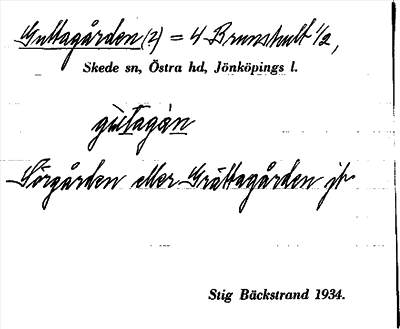 Guttagården (?) = 4 Brunshult 1/2,
Skede sn, Östra hd, Jönköpings l.
gùtagàn
Sörgården eller Gråttagården jt
Stig Bäckstrand 1934.